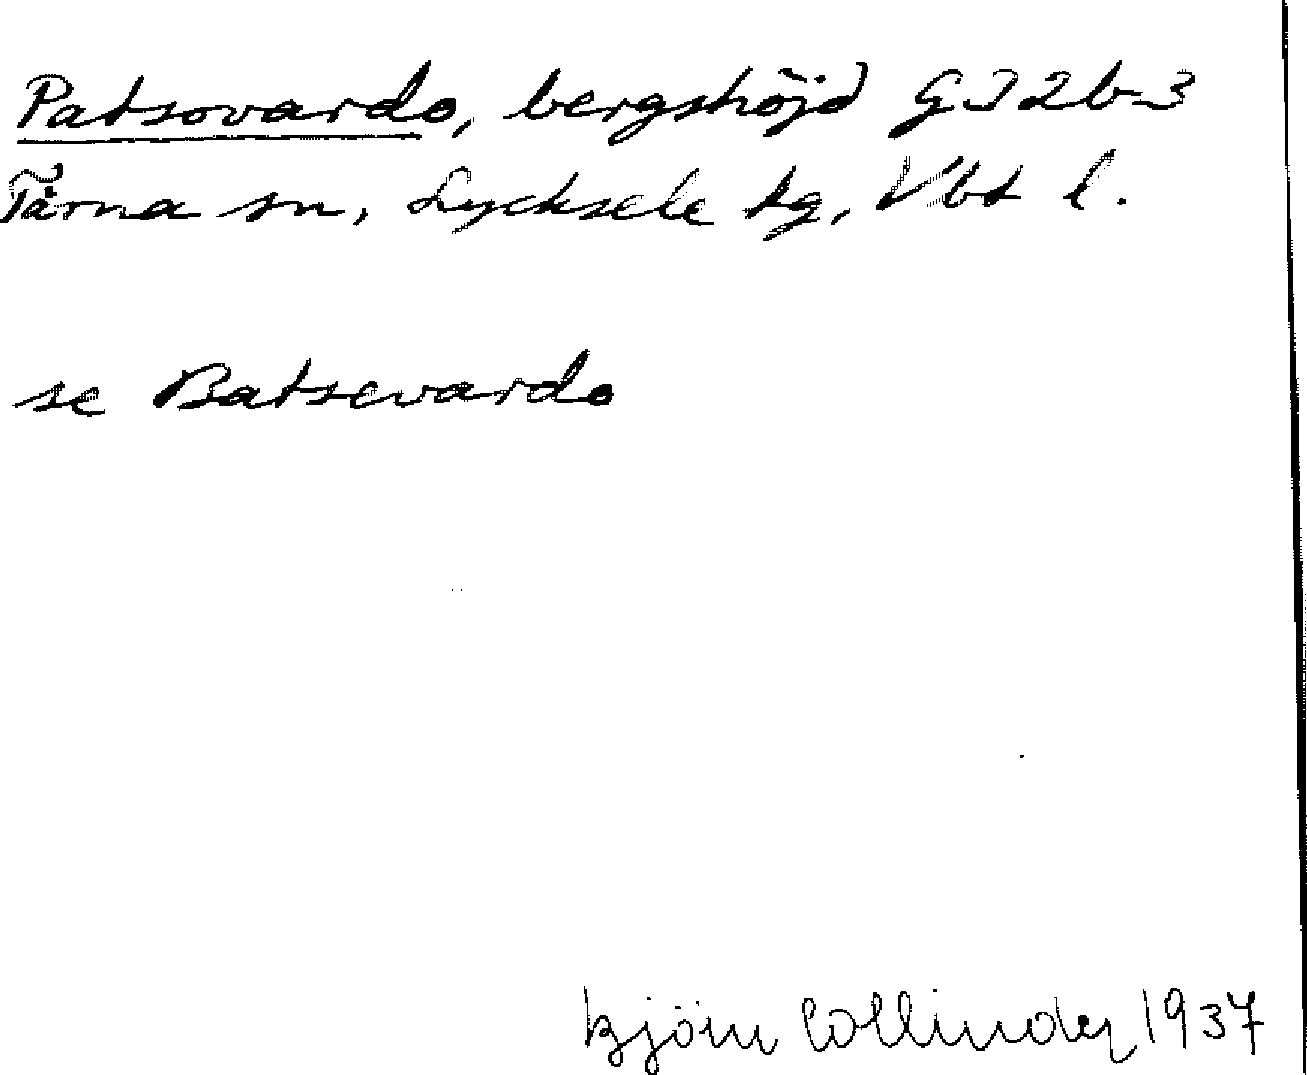 Patsovardo, bergshöjd GJ2b3
Tärna sn, Lycksele lg, Vbt l.
se Batsevardo
Björn Collinder 1937